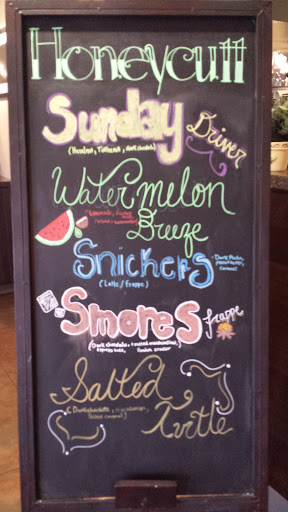 Honeycutt
Sunday
Driver
(Hazelnut, Toffeenut, dark chocolate)
Watermelon
Breeze
Snickers
(Latte / frappe)
caramel
Smores
frappe
(Dark chocolate, toasted marshmallow,
espresso base, graham cracker)
Salted
Turtle
(Dark chocolate,
salted caramel)